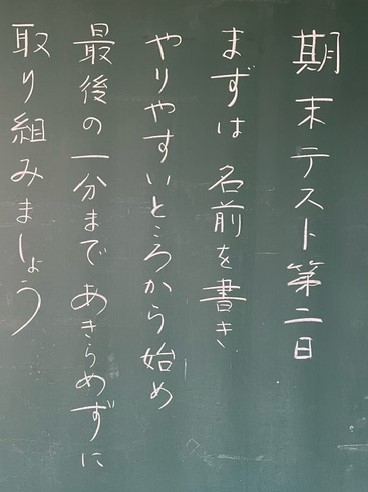 期末テスト第二日
まずは名前を書き
やりやすいところから始め
最後の一分まであきらめずに
取り組みましょう